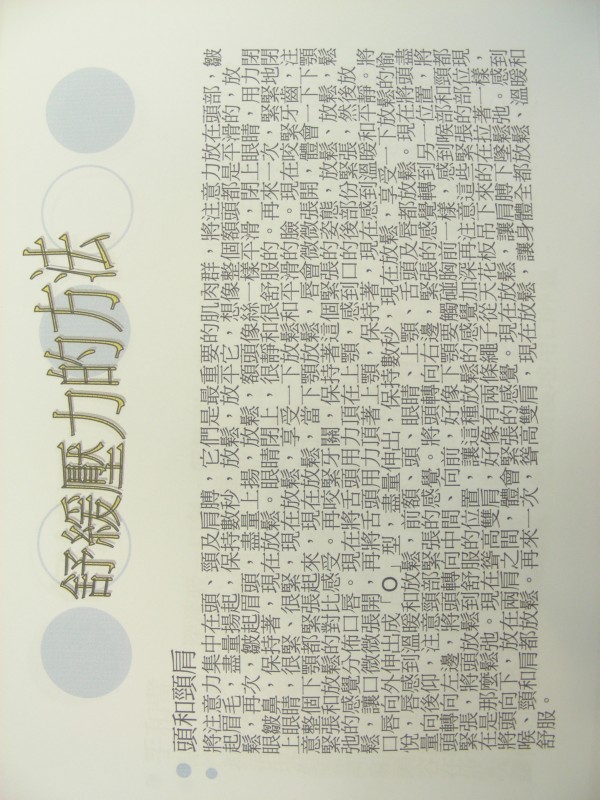 舒緩壓力的方法
頭和頸肩
將注意力集中在頭、頸及肩膊，它們是最重要的肌肉群，將注意力放在頭部，皺
起眉毛，盡量揚起，保持數秒，放鬆，放平它，想像整個額頭都是平滑的，放
鬆，再次，皺起眉頭，盡量上揚，放鬆，額頭像絲一樣平滑，閉上眼睛，用力閉
眼皺鼻，保持著，現在放鬆。眼睛閉上，很靜和很舒服的。再來一次，緊緊地閉
上眼睛，很緊、很緊，現在放鬆，享受一下放鬆和平滑的臉。現在咬緊牙齒，注
意整個下顎都緊張起來，現在放鬆，當下顎放鬆，唇會微微張開，體會一下下顎
緊張和放鬆的對比感受。再咬緊牙關，保持著這個緊張的姿態，放鬆、放鬆，鬆
弛的感覺分佈口唇。現在將舌頭用力頂在上顎，感到口的後部份緊張，然後放
鬆，讓口微微張開，再將舌頭用力頂著上顎，保持著，現在感到溫暖和平靜。將
口唇向外伸出成「O」型，盡量伸出，保持數秒，現在放鬆，享受一下放鬆的愉
悅，唇感到溫暖和放鬆，前額、頭、眼睛、上顎、舌頭及唇都放鬆。現在將頭盡
量向後仰，注意頸部緊張的感覺。將頭轉向右邊，緊張的感覺轉到另一位置，將
頭轉向左邊，將頭轉向中間、向前，好像下顎要觸碰胸前一樣，感到喉部和頸都
緊張，將頭放鬆到舒服的位置，讓這種放鬆的感覺加深再注意這些緊張的部位現
在是那麼鬆弛。現在聳高雙肩，好像有兩條繩子從天花板吊下來的在拉著一樣，
將頭向下，放在兩肩之間，體會緊張的感覺。現在放鬆，讓肩膊下墜鬆弛。感到
喉、頸和肩都放鬆。再來一次，聳高雙肩，現在放鬆，讓身體全都放鬆、溫暖和
舒服。